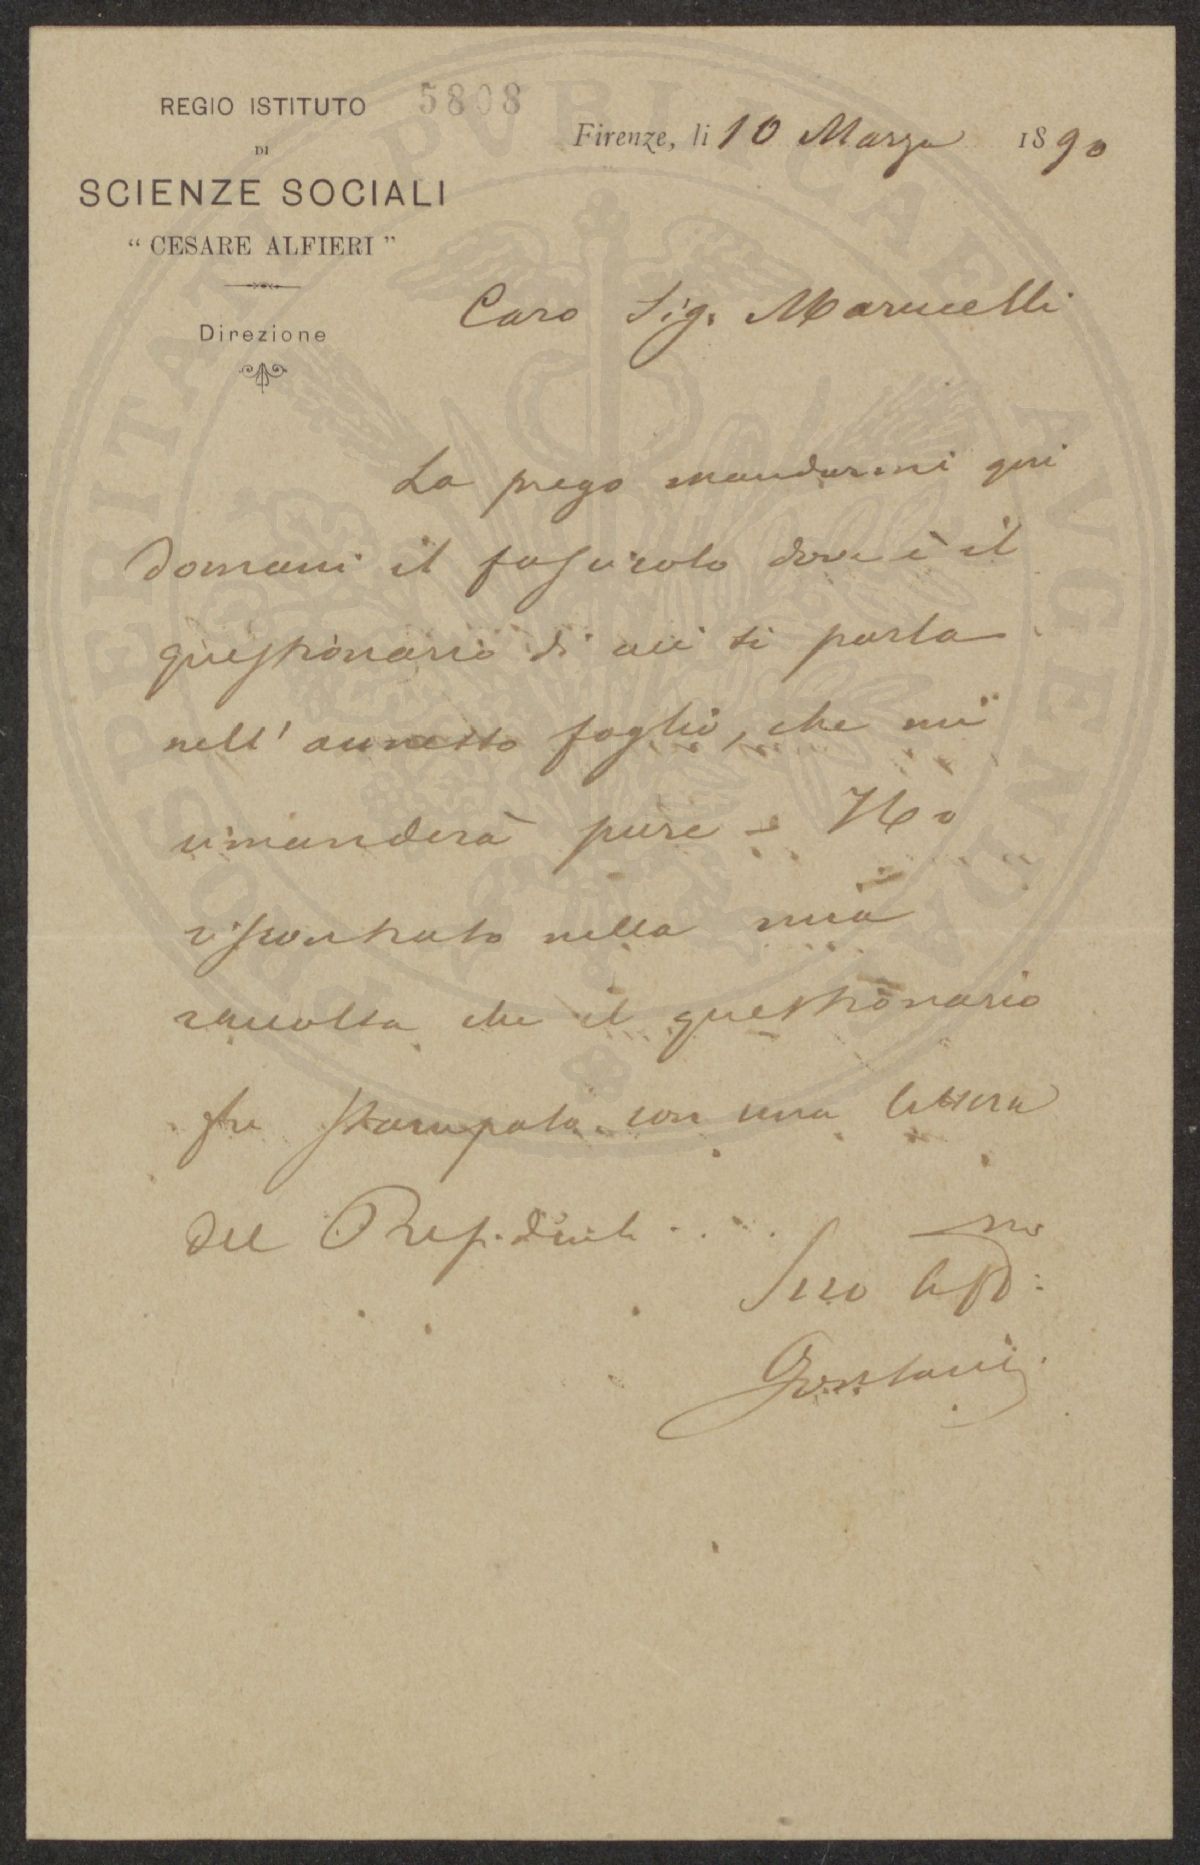 REGIO ISTITUTO
DI
SCIENZE SOCIALI
" CESARE ALFIERI "
Direzione
5808
Firenze, li 10 Marzo 1890
Caro Sig. Marucelli
La prego mandarmi qui
domani il fascicolo dove è il
questionario di cui si parla
nell' annesso foglio, che mi
rimanderà pure – Ho
riscontrato nella mia
raccolta che il questionario
fu stampato con una lettera
del Presidente . . .
Suo Aff.mo
PROSPERITATI PVBLICAE AVGENDAE